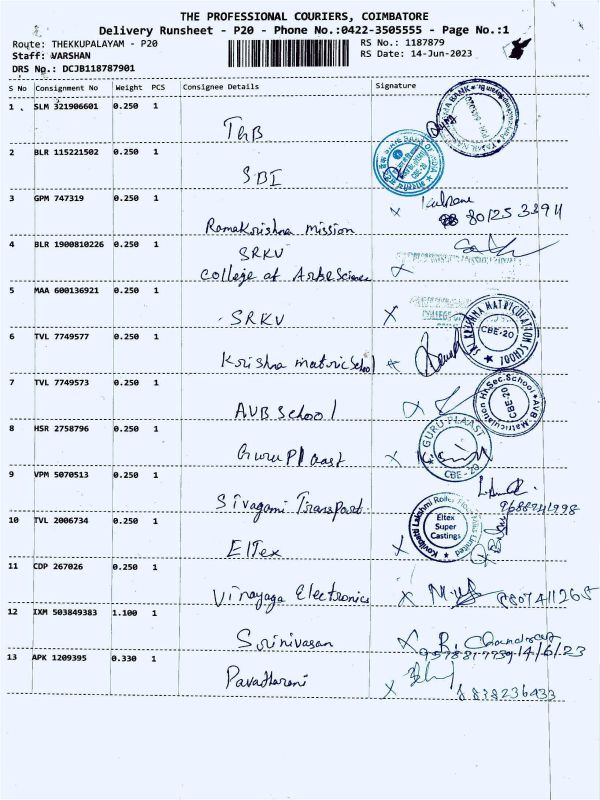 THE PROFESSIONAL COURIERS, COIMBATORE
Delivery Runsheet - P20 - Phone No.:0422-3505555 - Page No.:1
Route: THEKKUPALAYAM - P20
Staff: VARSHAN
DRS No.: DCJB118787901
RS No.: 1187879
RS Date: 14-Jun-2023
S No Consignment No Weight PCS Consignee Details Signature
1 SLM 321906601 0.250 1
TMB
2 BLR 115221502 0.250 1
SBI
3 GPM 747319 0.250 1
Ramakrishna mission
4 BLR 1900810226 0.250 1
SRKV
College of Arts & Science
5 MAA 600136921 0.250 1
SRKV
6 TVL 7749577 0.250 1
SRI KRISHNA MATRICULATION SCHOOL
CBE-20
Krishna matric School
7 TVL 7749573 0.250 1
AVB School
AVB Matriculation Hr.Sec.School
CBE-20
8 HSR 2758796 0.250 1
Guru Plaast
GURU PLAAST
CBE-20
9 VPM 5070513 0.250 1
Sivagami Transport
10 TVL 2006734 0.250 1
Eltex
Eltex
Super
Castings
11 CDP 267026 0.250 1
Vinayaga Electronics
12 IXM 503849383 1.100 1
Srinivasan
R. Chandra
14/6/23
13 APK 1209395 0.330 1
Pavadharani
8838236433